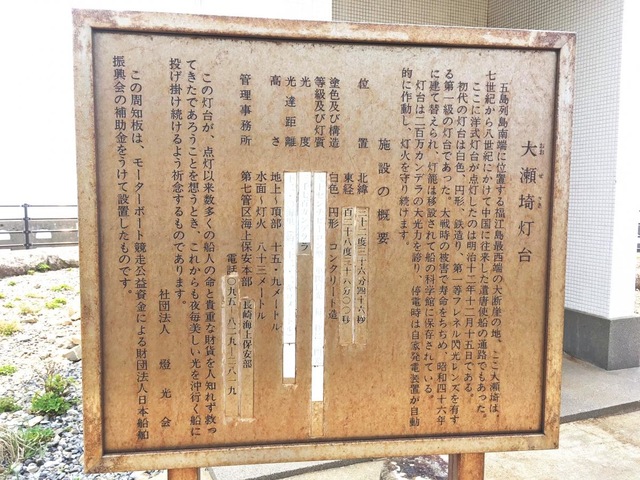 大瀬埼灯台
おお せ ざき
五島列島南端に位置する福江島最西端の大断崖の地、ここ大瀬埼は、
七世紀から八世紀にかけて中国に往来した遣唐使船の通路でもあった。
ここに洋式灯台が点灯したのは明治十二年十二月十五日である。
初代の灯台は白色、円形、鉄造り、第一等フレネル閃光レンズを有す
る第一級の灯台であった。大戦時の被害で寿命をちぢめ、昭和四十六年
に建て替えられ、灯籠は移設されて船の科学館に保存されている。
灯台は二百万カンデラの大光力を誇り、停電時は自家発電装置が自動
的に作動し、灯火を守り続けます。
施設の概要
位置 北緯 三十二度三十六分四十六秒
東経 百二十八度三十六分
塗色及び構造 白色 円形 コンクリート造
等級及び灯質
光度 ラ
光達距離
高さ 地上〜頂部 十五・九メートル
水面〜灯火 八十三メートル
管理事務所 第七管区海上保安本部 長崎海上保安部
電話〇九五-八二九-三八一九
この灯台が、点灯以来数多くの船人の命と貴重な財貨を人知れず救っ
てきたであろうことを想うとき、これからも夜毎美しい光を沖行く船に
投げ掛け続けるよう祈念するものであります。
社団法人 燈光会
この周知板は、モーターボート競走公益資金による財団法人日本船舶
振興会の補助金をうけて設置したものです。